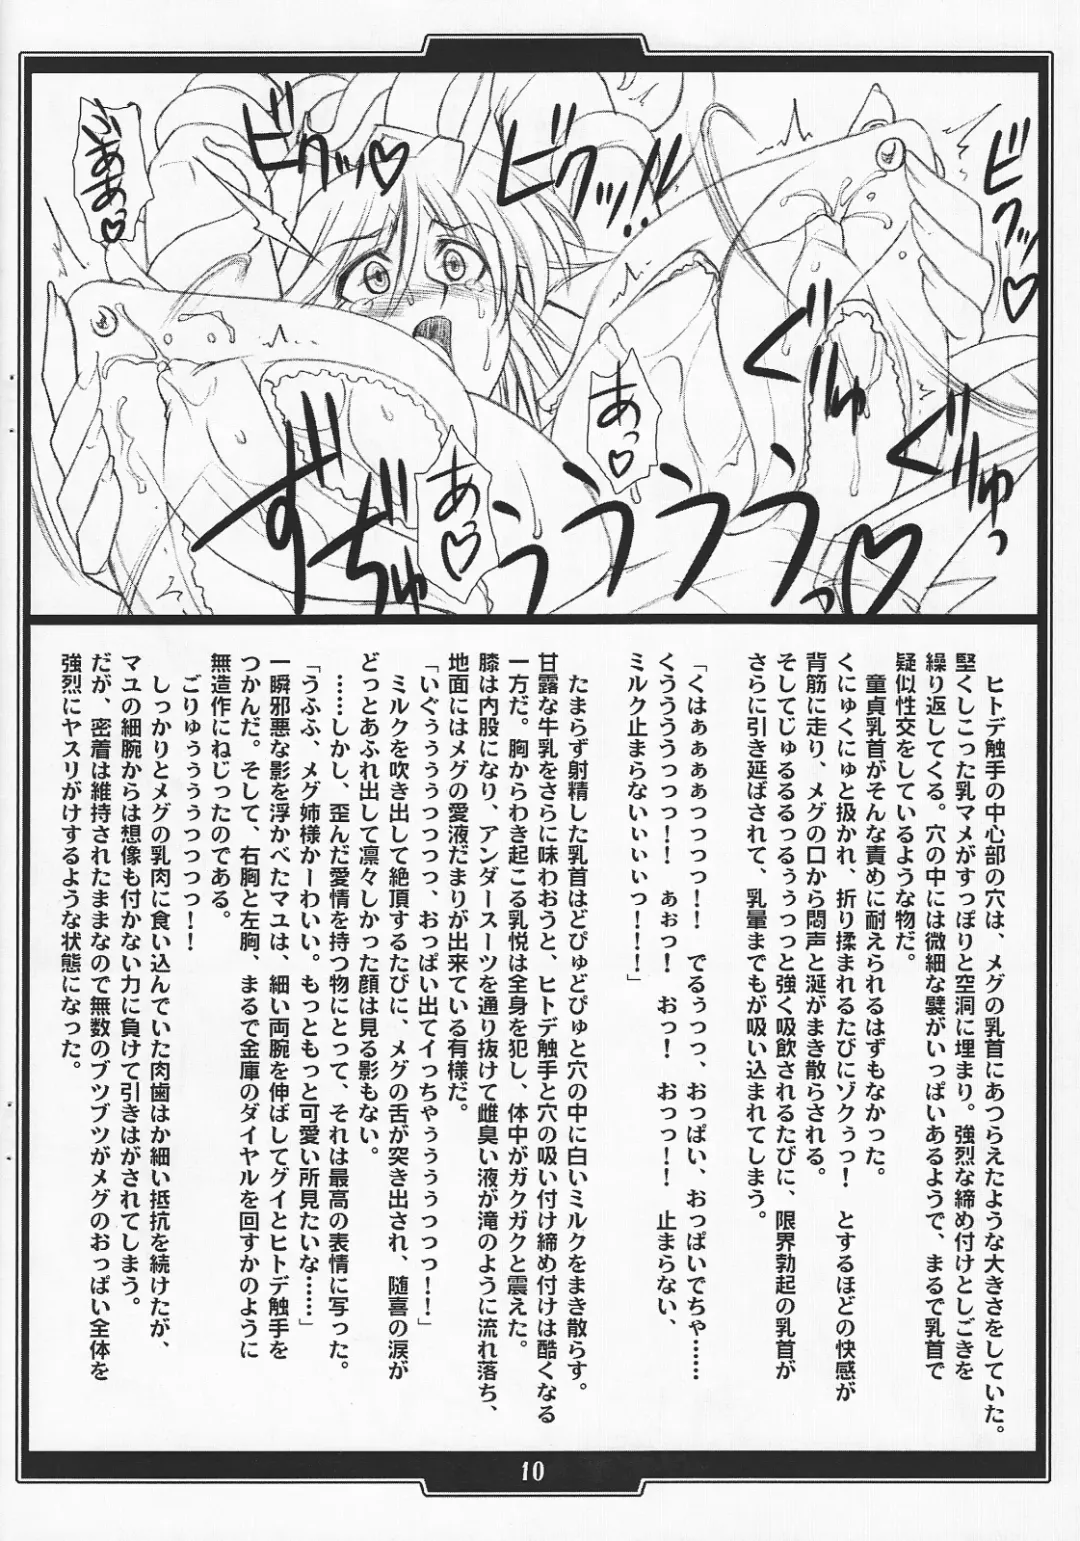 ビクッ♡
ビクッ!!
ビクッッ♡
ごああっ♡
ぐりゅ
ぐりゅっ
あっ♡
あっ♡
ずぢゅうううううっ♡
ヒトデ触手の中心部の穴は、メグの乳首にあつらえたような大きさをしていた。
堅くしこった乳マメがすっぽりと空洞に埋まり。強烈な締め付けとしごきを
繰り返してくる。穴の中には微細な襞がいっぱいあるようで、まるで乳首で
疑似性交をしているような物だ。
童貞乳首がそんな責めに耐えられるはずもなかった。
くにゅくにゅと扱かれ、折り揉まれるたびにゾクぅっ！　とするほどの快感が
背筋に走り、メグの口から悶声と涎がまき散らされる。
そしてじゅるるるっるぅぅっっと強く吸飲されるたびに、限界勃起の乳首が
さらに引き延ばされて、乳暈までもが吸い込まれてしまう。
「くはぁぁぁぁっっっっ！！　でるぅっっっ、おっぱい、おっぱいでちゃ……
くううううっっっ！！　ぁぉっ！　おっ！　おっっ！！　止まらない、
ミルク止まらないぃぃぃっ！！！！」
たまらず射精した乳首はどぴゅどぴゅと穴の中に白いミルクをまき散らす。
甘露な牛乳をさらに味わおうと、ヒトデ触手と穴の吸い付け締め付けは酷くなる
一方だ。胸からわき起こる乳悦は全身を犯し、体中がガクガクと震えた。
膝は内股になり、アンダースーツを通り抜けて雌臭い液が滝のように流れ落ち、
地面にはメグの愛液だまりが出来ている有様だ。
「いぐぅぅぅぅっっっっ、おっぱい出てイっちゃぅぅぅぅっっっっ！！」
ミルクを吹き出して絶頂するたびに、メグの舌が突き出され、随喜の涙が
どっとあふれ出して凛々しかった顔は見る影もない。
……しかし、歪んだ愛情を持つ物にとって、それは最高の表情に写った。
「うふふ、メグ姉様かーわいい。もっともっと可愛い所見たいな……」
一瞬邪悪な影を浮かべたマユは、細い両腕を伸ばしてグイとヒトデ触手を
つかんだ。そして、右胸と左胸、まるで金庫のダイヤルを回すかのように
無造作にねじったのである。
ごりゅうぅぅぅっっっっ！！
しっかりとメグの乳肉に食い込んでいた肉歯はか細い抵抗を続けたが、
マユの細腕からは想像も付かない力に負けて引きはがされてしまう。
だが、密着は維持されたままなので無数のブツブツがメグのおっぱい全体を
強烈にヤスリがけするような状態になった。
10